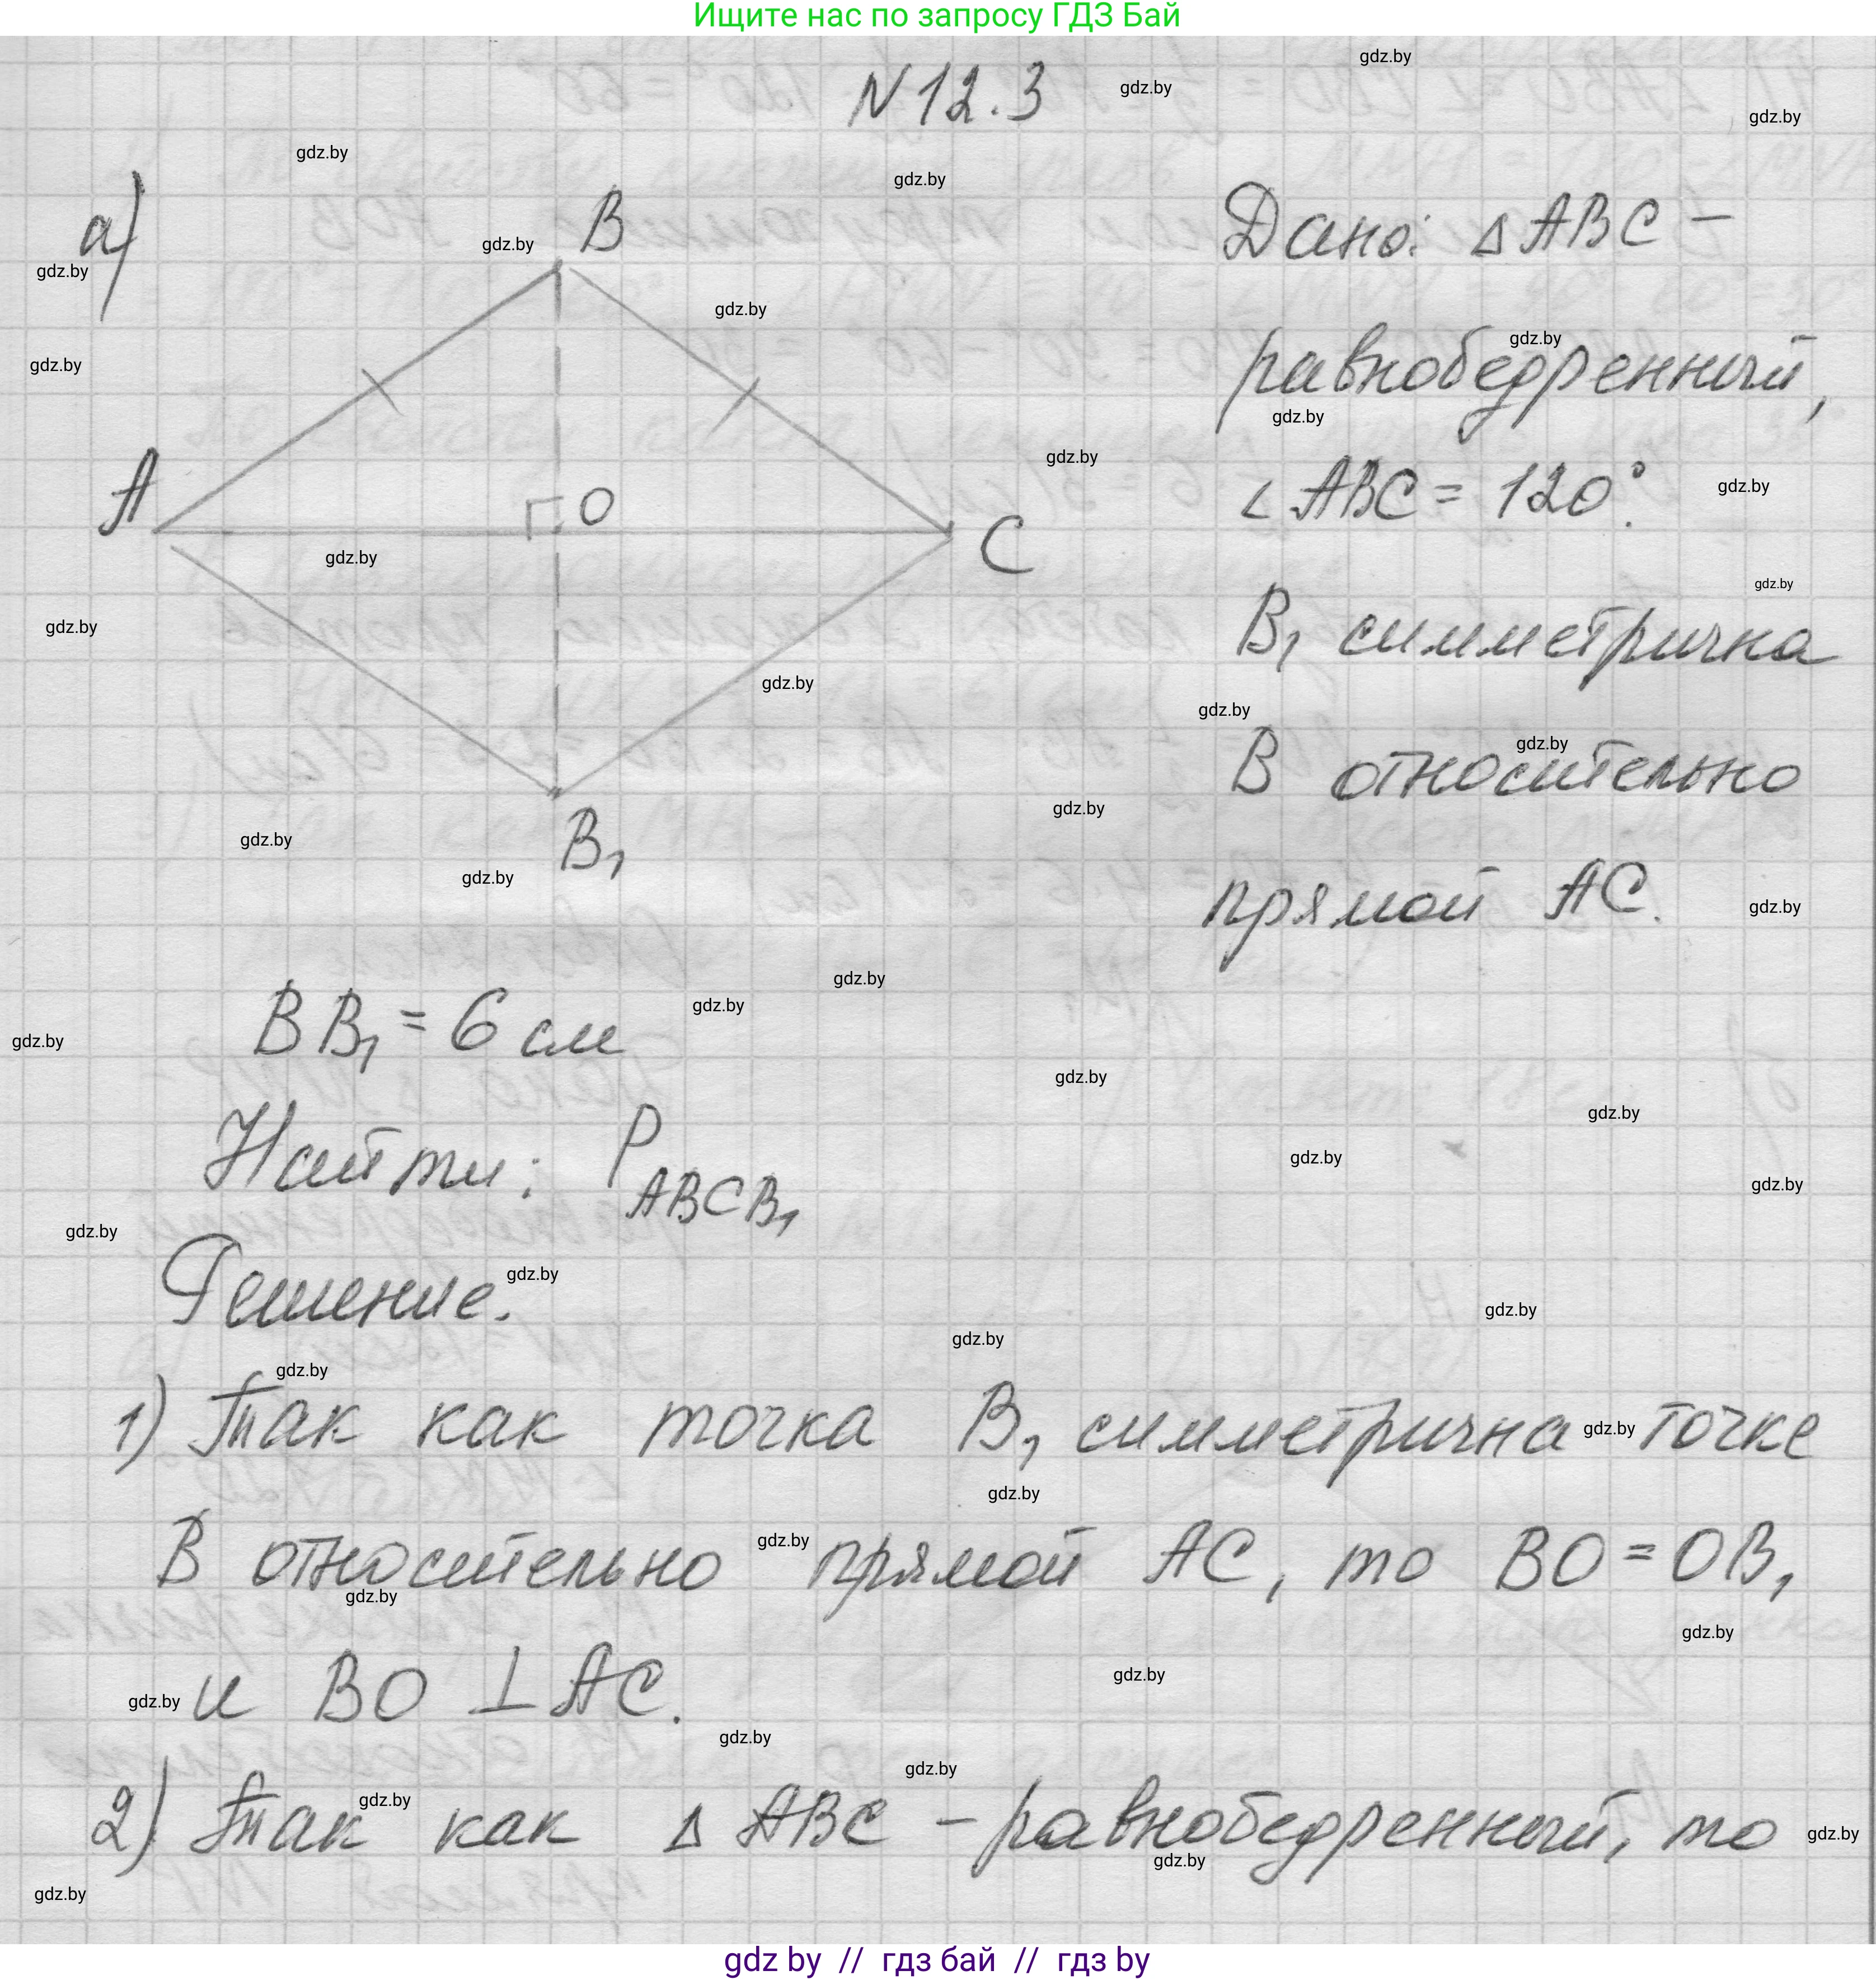 Ищите нас по запросу ГДЗ Бай
N 12.3
а)
B
A
O
C
B₁
Дано: △ABC –
равнобедренный,
∠ABC = 120°.
B₁ симметрична
B относительно
прямой AC.
BB₁ = 6 см
Найти: P ABCB₁
Решение.
1) Так как точка B₁ симметрична точке
B относительно прямой AC, то BO = OB₁
и BO ⊥ AC.
2) Так как △ ABC – равнобедренный, то
gdz by // гдз бай // гдз by